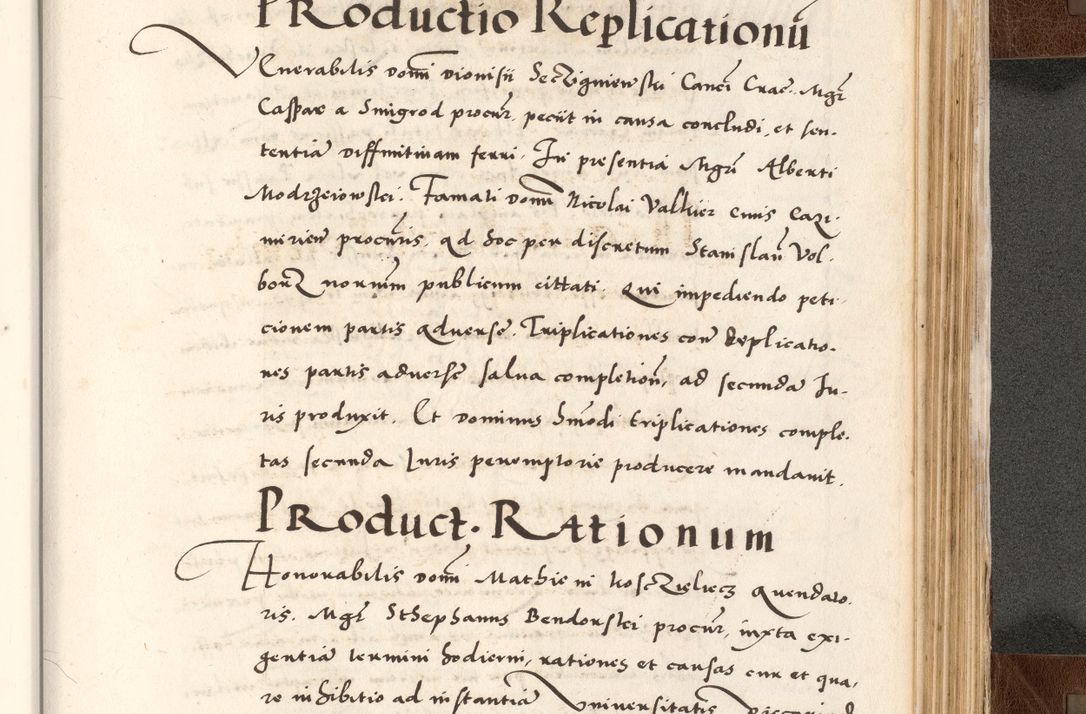 PRoductio Replicationū
Venerabilis domī Dionisii SecZigniewski Canci Crac. Mgr
Caspar a Smigrod procur, peciit in causa concludi, et sen-
tentiā diffinitiuam ferri. In presentia Mgri Alberti
Modrzeiowskei. Famati domī Nicolai Valhier ciuis Cazi-
mirien procuris, ad hoc per discretum Stanislaū Vol-
borZ notarium publicum cittati. Qui impediendo peti-
cionem partis aduerse. Triplicationes con Replicatio-
nes partis aduerse salua completion, ad secunda Iu-
ris produxit. Et dominus hmōdi triplicationes comple-
tas secunda Iuris peremptorie producere mandauit.
PRoduct. RAtionum
Honorabilis domī Mathie in KoscZieliecz quendaro-
ris. Mgr Sthephanus Bendonskei procur, iuxta exi-
gentiā termini hodierni, rationes et causas cur et qua-
re inhibitio ad instantiā Vniuersitatis